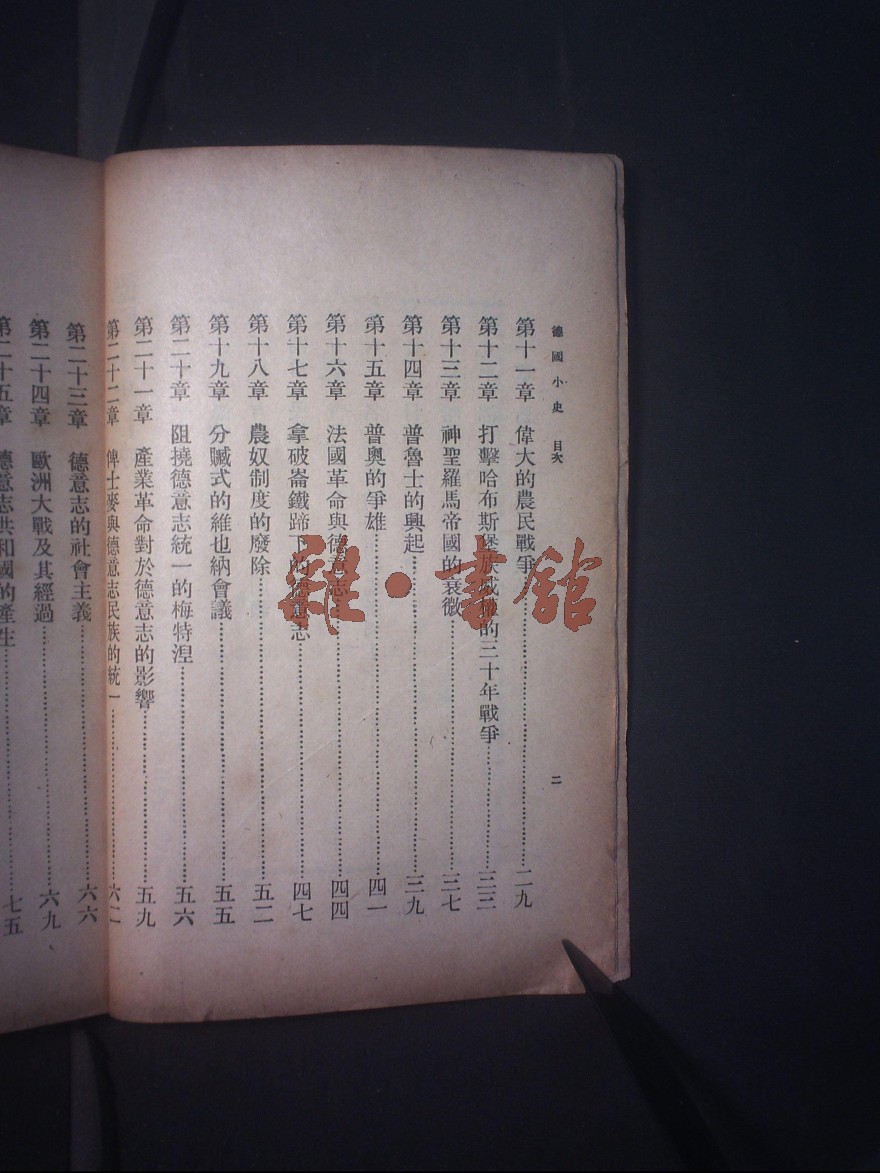 德國小史　目次
二
第十一章　偉大的農民戰爭……二九
第十二章　打擊哈布斯堡族威權的三十年戰爭……三三
第十三章　神聖羅馬帝國的衰微……三七
第十四章　普魯士的興起……三九
第十五章　普奧的爭雄……四一
第十六章　法國革命與德意志……四四
第十七章　拿破崙鐵蹄下的德意志……四七
第十八章　農奴制度的廢除……五二
第十九章　分贓式的維也納會議……五五
第二十章　阻撓德意志統一的梅特涅……五六
第二十一章　產業革命對於德意志的影響……五九
第二十二章　俾士麥與德意志民族的統一……六二
第二十三章　德意志的社會主義……六六
第二十四章　歐洲大戰及其經過……六九
第二十五章　德意志共和國的產生……七五
雜·書館